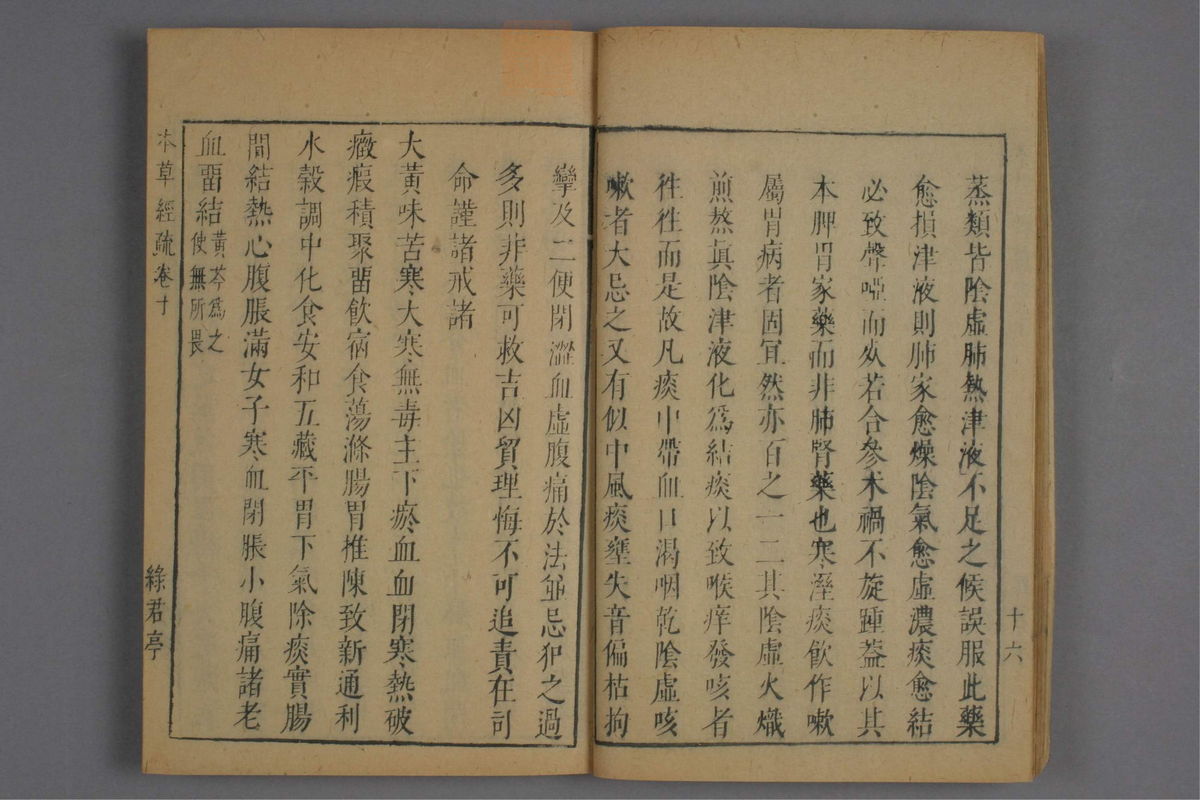 蒸類皆陰虛肺熱津液不足之候誤服此藥
愈損津液則肺家愈燥陰氣愈虛濃痰愈結
必致聲啞而从若合參术禍不旋踵蓋以其
本脾胃家藥而非肺腎藥也寒溼痰飮作嗽
屬胃病者固宜然亦百之一二其陰虛火熾
煎熬眞陰津液化爲結痰以致喉痒發咳者
徃徃而是故凡痰中帶血口渴咽乾陰虛咳
嗽者大忌之又有似中風痰壅失音偏枯拘
十六
攣及二便閉澀血虛腹痛於法並忌犯之過
多則非藥可救吉凶貿理悔不可追責在司
命謹諸戒諸
大黃味苦寒大寒無毒主下瘀血血閉寒熱破
癥瘕積聚畱飮宿食蕩滌腸胃椎陳致新通利
水穀調中化食安和五藏平胃下氣除痰實腸
間結熱心腹脹滿女子寒血閉脹小腹痛諸老
血畱結黃芩爲之
使無所畏
本草經疏卷十
綠君亭